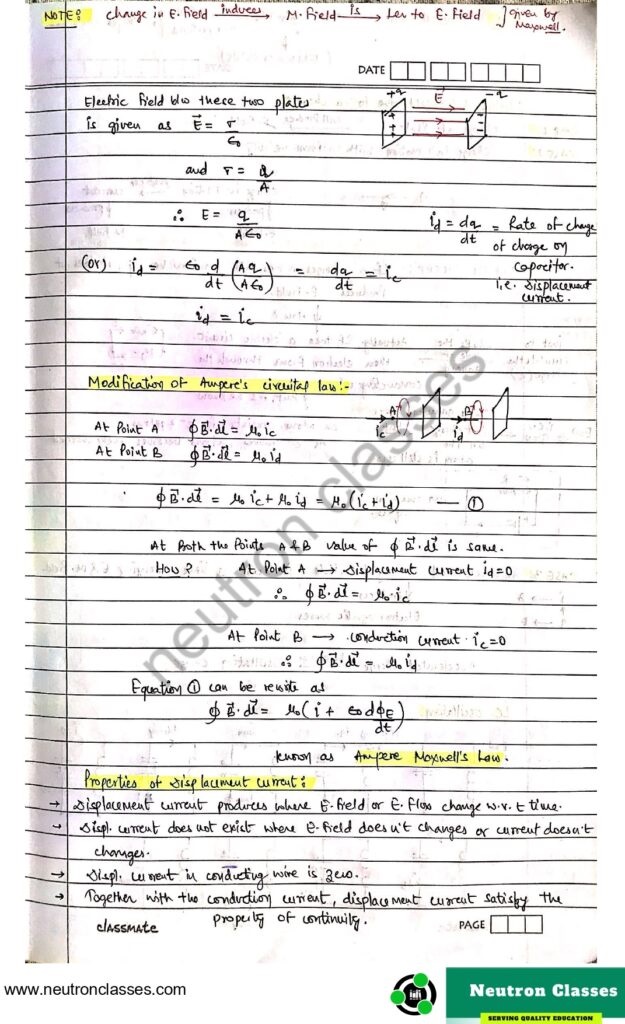 NOTE: change in E. Field induces M. Field is Ler to E. Field ] Given by Maxwell.
DATE
Electric Field b/w these two plates
+q E⃗ -q
is given as E⃗ = σ/ϵ₀
and σ = q/A
∴ E = q/Aϵ₀
id = dq/dt = Rate of change of charge on capacitor. i.e. Displacement current.
(or) id = ϵ₀ d/dt (Aq/Aϵ₀) = dq/dt = ic
id = ic
Modification of Ampere's circuital law:-
At Point A ∮B⃗·dl⃗ = μ₀ic
At Point B ∮B⃗·dl⃗ = μ₀id
A B
ic id
∮B⃗·dl⃗ = μ₀ic + μ₀id = μ₀(ic+id) — ①
At Both the Points A & B value of ∮B⃗·dl⃗ is same.
How? At Point A → Displacement current id=0
∴ ∮B⃗·dl⃗ = μ₀ic
At Point B → conduction current ic=0
∴ ∮B⃗·dl⃗ = μ₀id
Equation ① can be rewrite as
∮B⃗·dl⃗ = μ₀(i + ϵ₀dϕE/dt)
known as Ampere Maxwell's Law.
Properties of Displacement Current:
→ Displacement current produces where E-field or E. Flux change w.r.t time.
→ Displ. current does not exist where E-field does n't changes or current doesn't
changes.
→ Displ. current in conducting wire is zero.
→ Together with the conduction current, displacement current satisfy the
property of continuity.
classmate
PAGE
neutron classes
www.neutronclasses.com
Neutron Classes
SERVING QUALITY EDUCATION